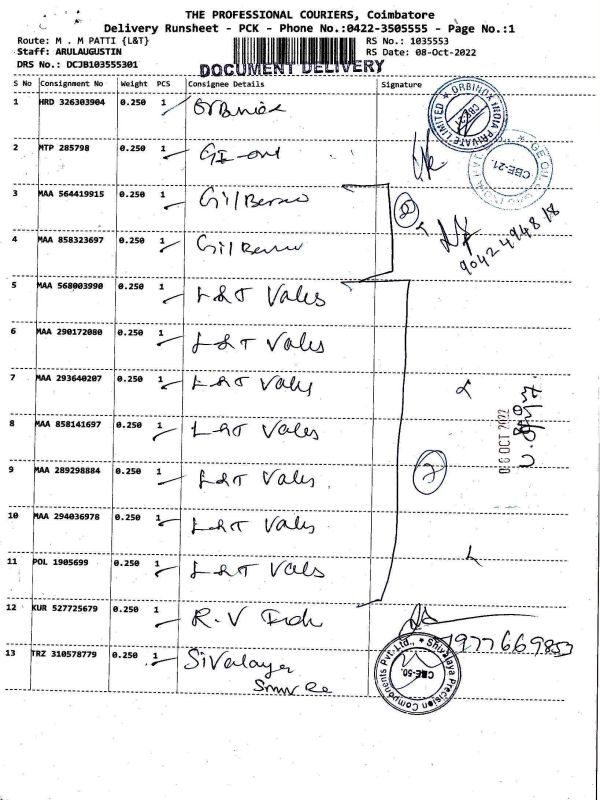 THE PROFESSIONAL COURIERS, Coimbatore
Delivery Runsheet - PCK - Phone No.:0422-3505555 - Page No.:1
Route: M . M PATTI {L&T} RS No.: 1035553
Staff: ARULAUGUSTIN RS Date: 08-Oct-2022
DRS No.: DCJB103555301 DOCUMENT DELIVERY
S No Consignment No Weight PCS Consignee Details Signature
1 HRD 326303904 0.250 1
ORBINOX INDIA PRIVATE LIMITED
2 MTP 285798 0.250 1
CBE-21.
3 MAA 564419915 0.250 1 Gil Berco
2
9042494818
4 MAA 858323697 0.250 1 Gil Berco
5 MAA 568003990 0.250 1 L&T Vales
6 MAA 290172080 0.250 1 L&T Vales
7 MAA 293640207 0.250 1 L&T Vales
OCT 2022
8 MAA 858141697 0.250 1 L&T Vales
9 MAA 289298884 0.250 1 L&T Vales
7
10 MAA 294036978 0.250 1 L&T Vales
11 POL 1905699 0.250 1 L&T Vals
12 KUR 527725679 0.250 1 R.V
13 TRZ 310578779 0.250 1 Sivalaya
Shivalaya Precision Components Pvt.Ltd.,
CBE-50.